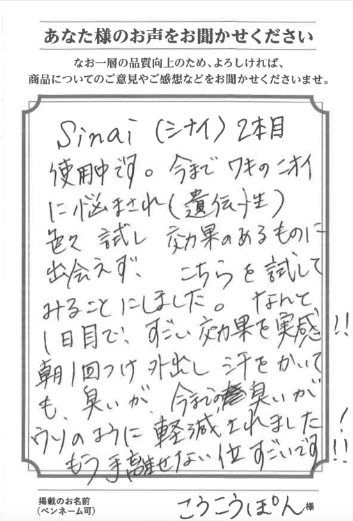 あなた様のお声をお聞かせください
なお一層の品質向上のため、よろしければ、
商品についてのご意見やご感想などをお聞かせくださいませ。
Sinai(シナイ)2本目
使用中です。今までワキのニオイ
に悩まされ(遺伝性)
色々試し効果のあるものに
出会えず、こちらを試して
みることにしました。なんと
1日目で、すごい効果を実感!!
朝1回つけ外出し汗をかいて
も、臭いが、今までの臭いが
ウソのように軽減されました!
もう手離せない位すごいです!!
掲載のお名前
(ペンネーム可)
こうこうぽん様